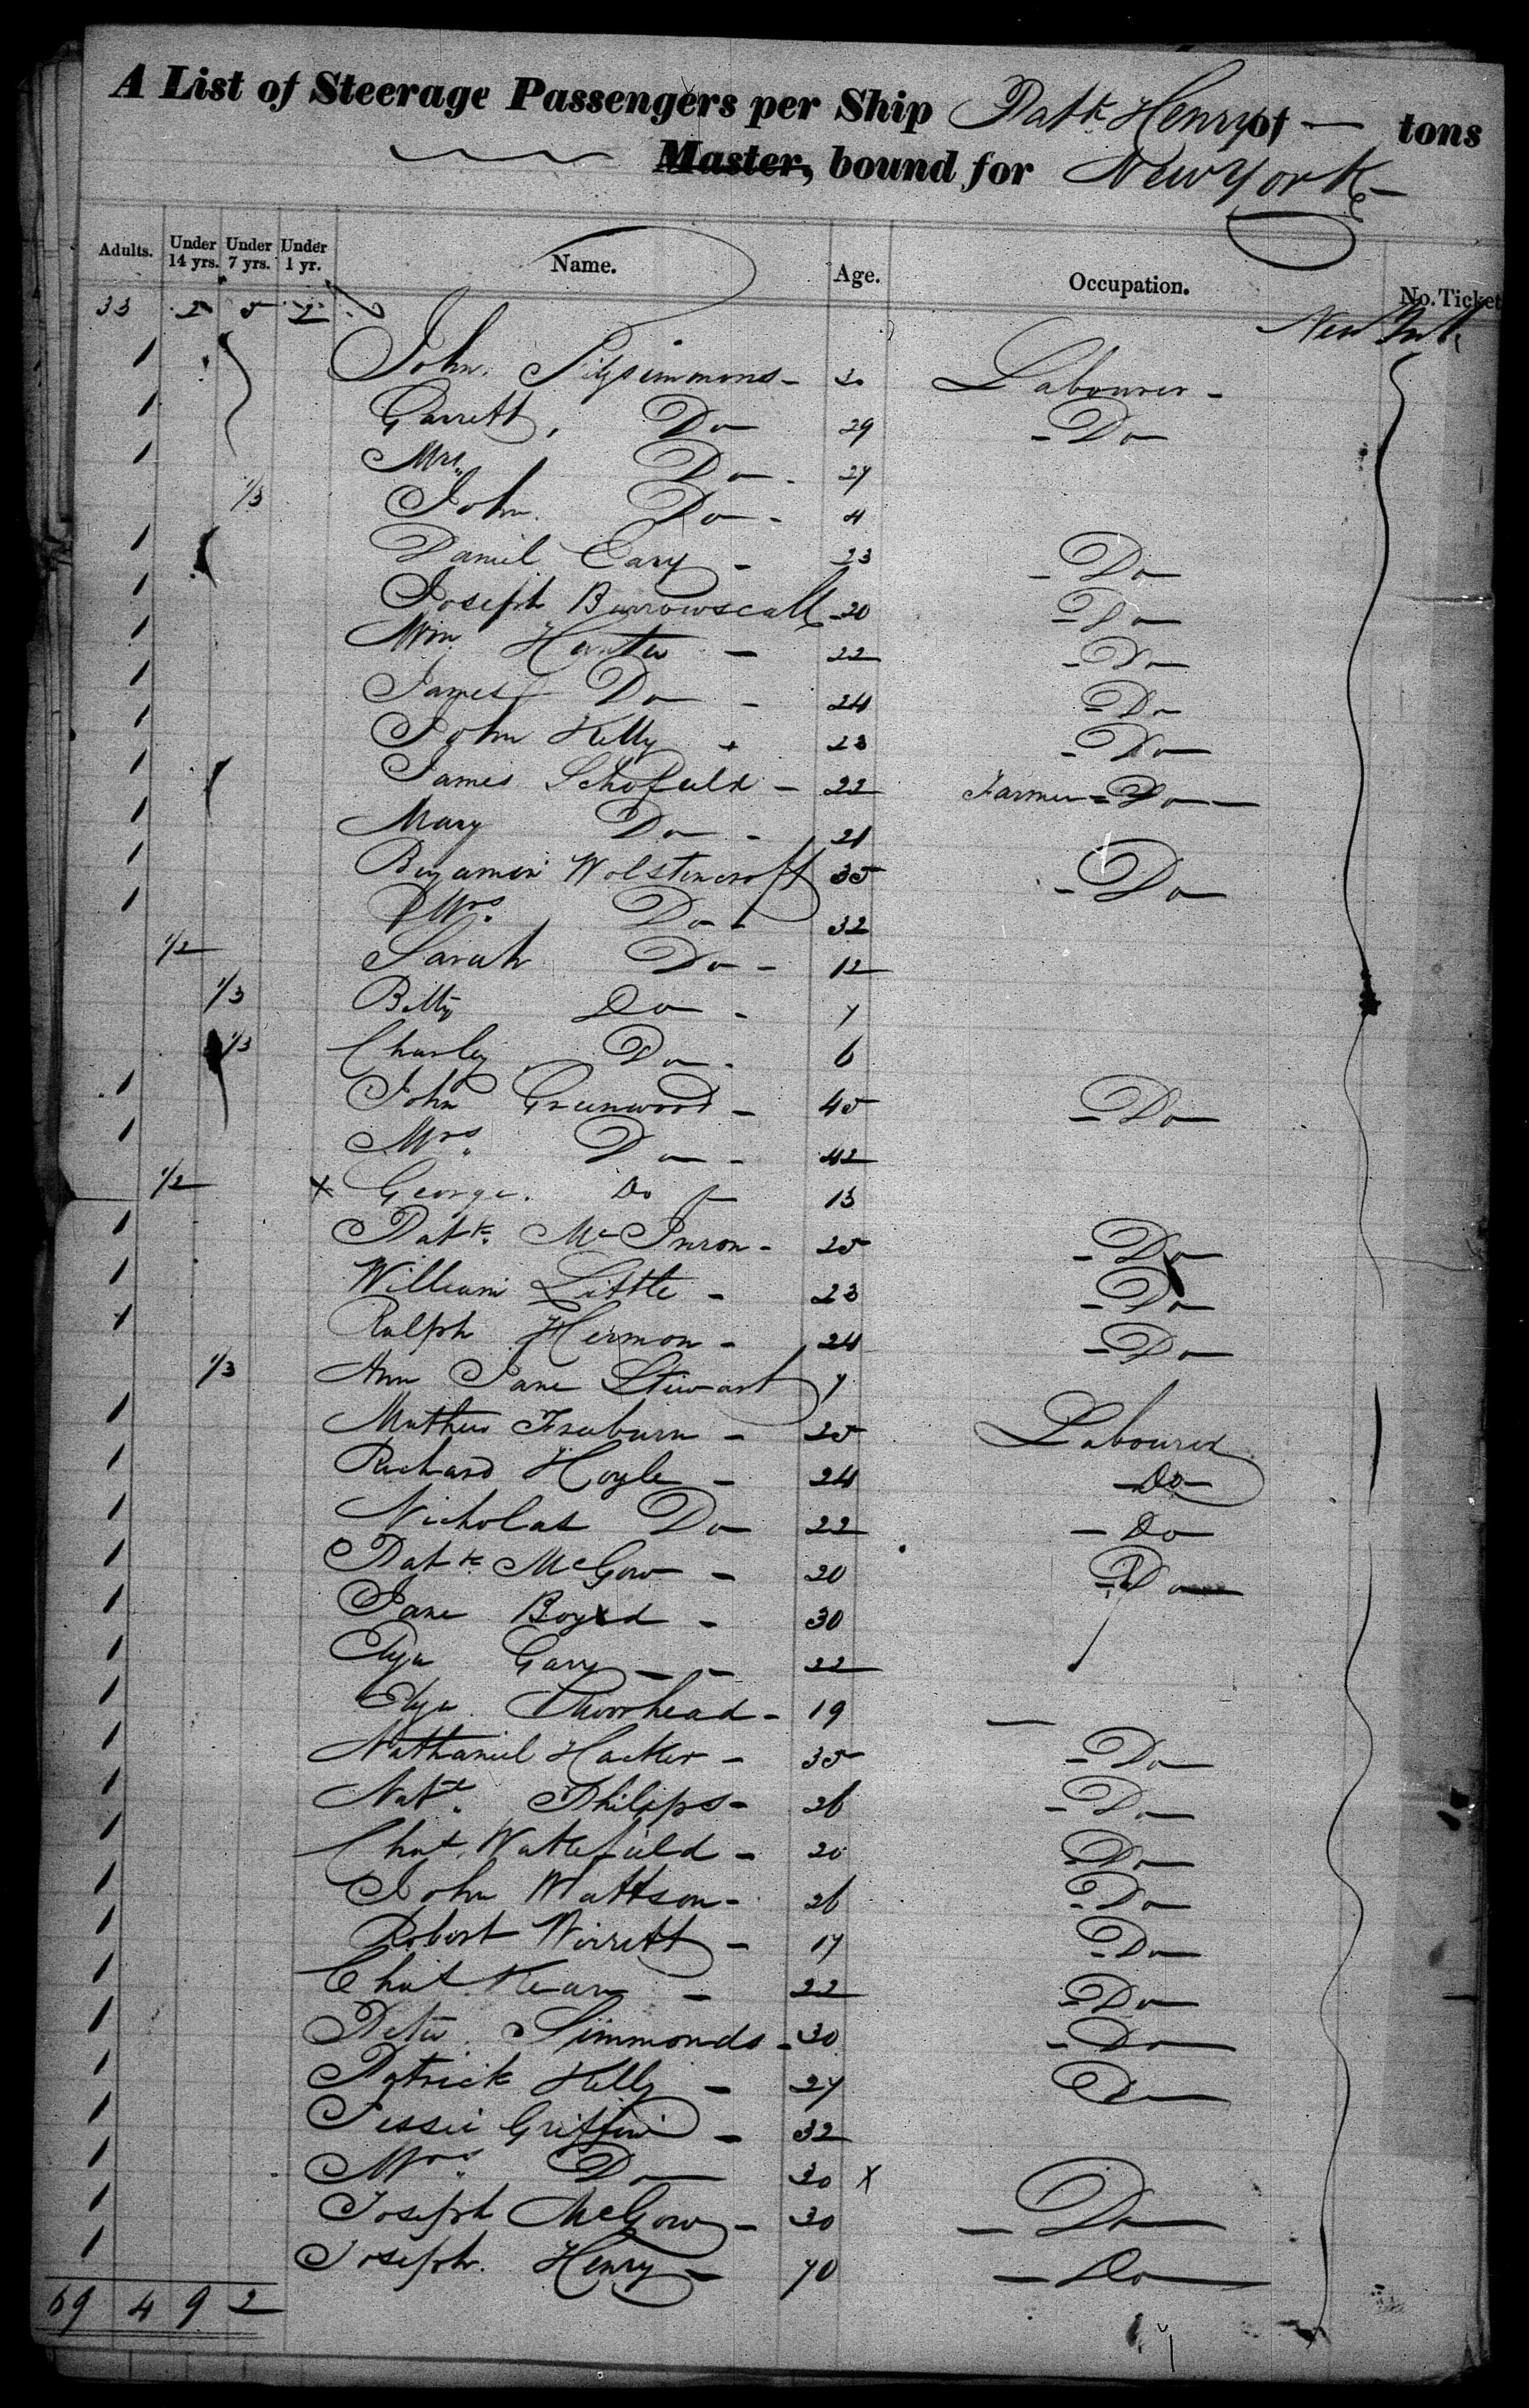 A List of Steerage Passengers per Ship Patk Henry of — tons
Master, bound for New York
Adults. Under 14 yrs. Under 7 yrs. Under 1 yr. Name. Age. Occupation. No. Ticket
33 2 5 2 New York
1 John Fitzsimmons - 30 Labourer -
1 Garrett, Do 29 - Do
1 Mrs. Do - 27
1/3 John Do - 4
1 Daniel Cary - 23 - Do
1 Joseph 20 - Do
1 Wm Hunter - 22 - Do
1 James Do - 24 - Do
1 John Kelly 23 - Do
1 James Schofield - 22 Farmer = Do
1 Mary Do - 21
1 Benjamin Wolstencroft 35 - Do
1 Mrs. Do - 32
1/2 Sarah Do - 12
1/3 Betty Do - 7
1/3 Charley Do - 6
1 John Greenwood - 45 - Do
1 Mrs. Do - 42
1/2 x George. Do 13
1 Patk. Mc - 25 - Do
1 William Little - 23 - Do
1 Ralph Hermon - 24 - Do
1/3 Ann Jane Stewart 7
1 Mathew - 25 Labourer
1 Richard Hoyle - 24 - Do -
1 Nicholas Do 22 - Do
1 Patk McGow - 20 - Do
1 Jane Boyd - 30
1 Eliza Gary - - 22
1 Eliza Moorhead - 19 —
1 Nathaniel Hacker - 35 - Do
1 Natl. Philips - 26 - Do
1 Chas. Wakefield - 20 - Do
1 John Wattson - 26 - Do
1 Robert Wirrett - 17 - Do
1 Chas. - 22 - Do
1 Peter Simmonds - 30 - Do
1 Patrick Kelly - 27 Do
1 Jessie Griffin - 32
1 Mrs. Do 30 x
1 Joseph McGow - 30 - Do
1 Joseph. Henry - 70 - Do
69 4 9 2